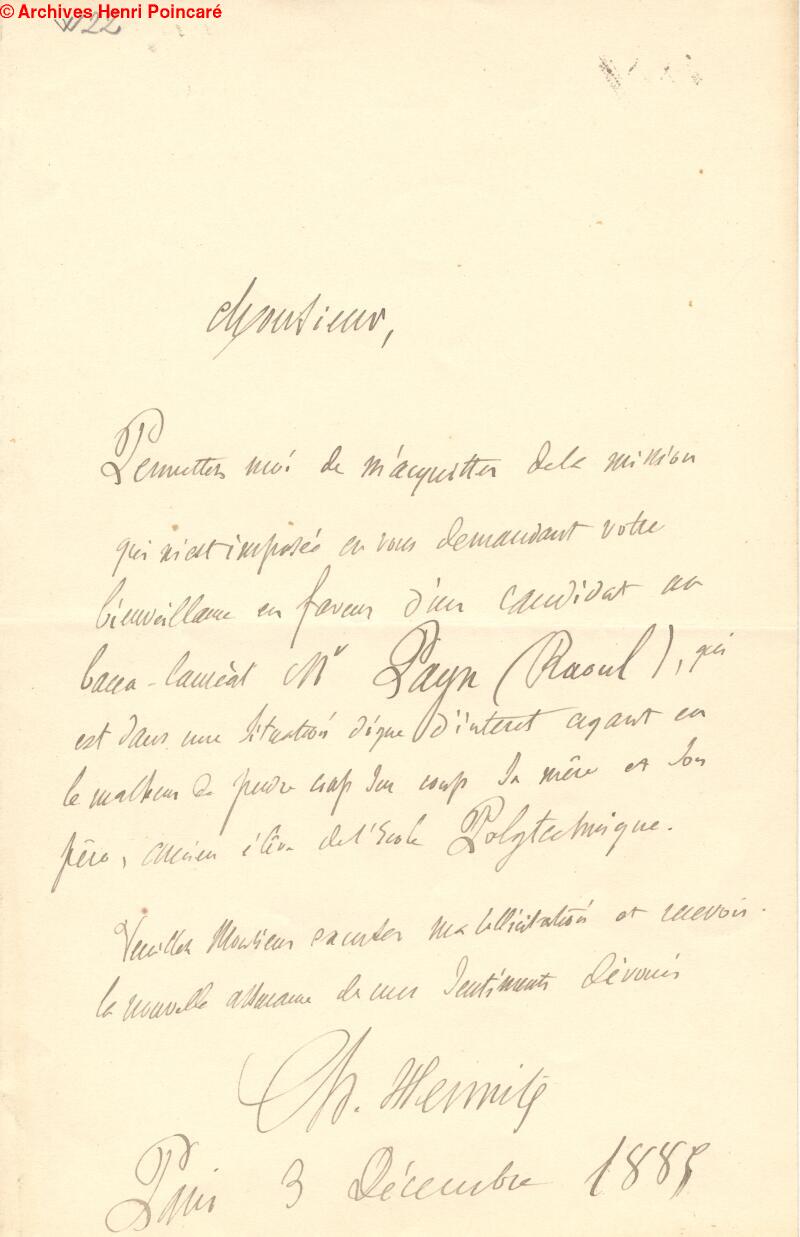 © Archives Henri Poincaré
22
Monsieur,
Permettez moi de m'acquitter de la mission
qui m'est imposée en vous demandant votre
bienveillance en faveur d'un candidat au
bacca-lauréat Mr Payn (Raoul), qui
est dans une situation digne d'interet ayant eu
le malheur de perdre coup sur coup sa mère et son
père, ancien élève de l'Ecole Polytechnique.
Veuillez Monsieur excuser ma sollicitation et recevoir
la nouvelle assurance de mes sentiments dévoués
Ch. Hermite
Paris 3 Décembre 1885